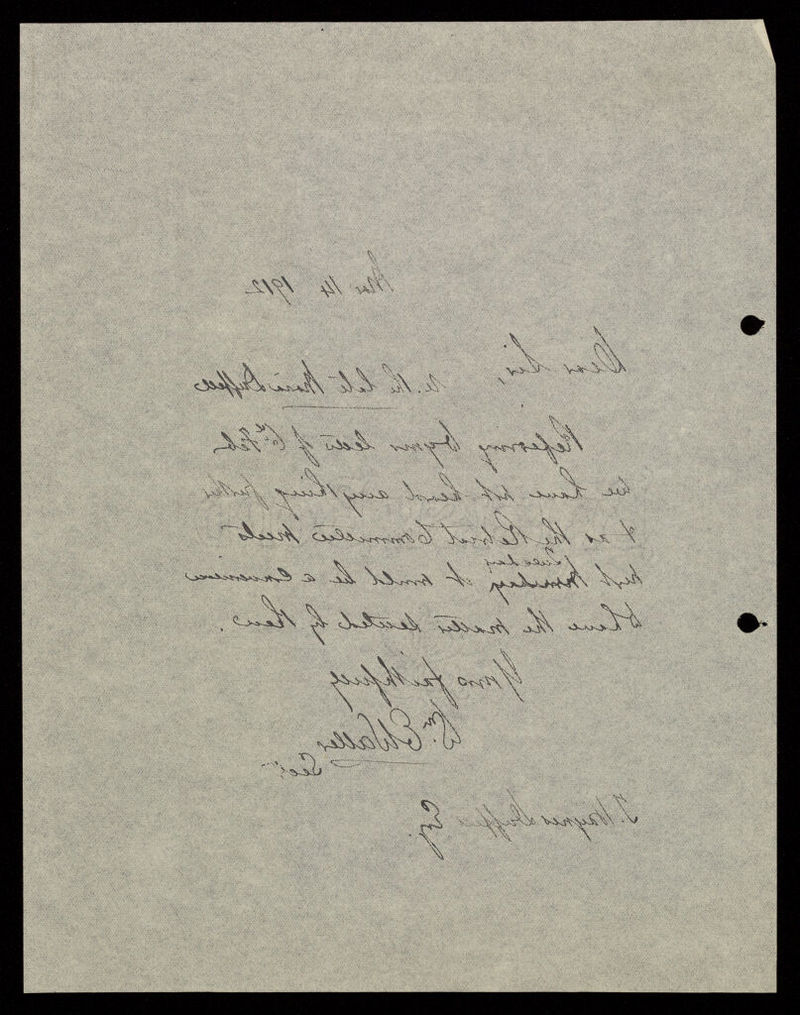 Nov 14 1912
Dear Sir,
re. the late Duffee
Referring to yrs letter of 6th Feb
we have not heard anything further
& as the Retreat Committee meets
Tuesday
next Monday it would be a convenience
to have the matter settled by then.
Yours faithfully
Wm. E Waller
Secy
T. Haynes Duffee Esq.